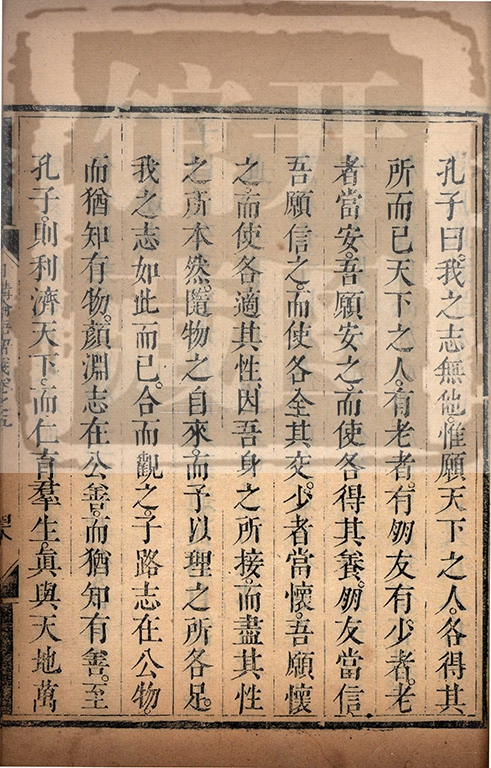 孔子曰。我之志無他。惟願天下之人。各得其
所而已天下之人。有老者。有朋友有少者。老
者當安。吾願安之而使各得其養。朋友當信
吾願信之。而使各全其交。少者當懷。吾願懷
之而使各適其性。因吾身之所接。而盡其性
之所本然。隨物之自來。而予以理之所各足。
我之志如此而已。合而觀之。子路志在公物。
而猶知有物。顏淵志在公善。而猶知有善。至
孔子。則利濟天下。而仁育羣生。真與天地萬